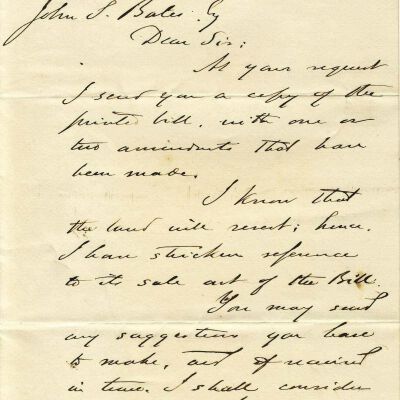 John S. Bates Esq
Dear Sir:
At your request
I send you a copy of the
printed bill, with one or
two amendments that have
been made.
I know that
the land will revert; hence,
I have stricken reference
to its sale out of the Bill.
You may send
any suggestions you have
to make, and if received
in time, I shall consider